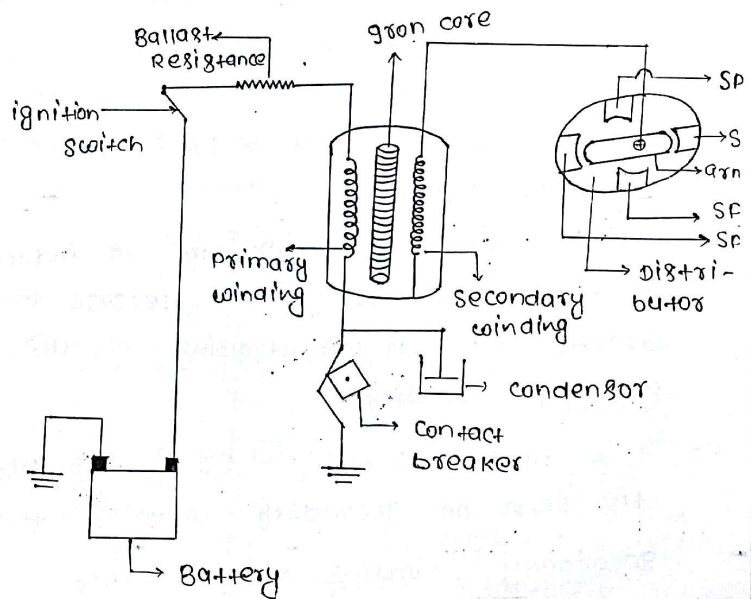 Ballast
Resistance
gron core
ignition
switch
SP
S
arn
SP
SP
Distri-
butor
primary
winding
secondary
winding
condensor
contact
breaker
Battery